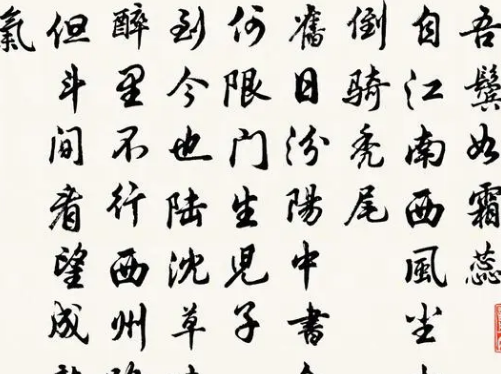 吾鬓如霜蕊
自江南西風尘
倒騎秃尾
舊日汾陽中書
何限门生児子
到今也陆沈草
醉里不行西州
但斗间看望成
氣